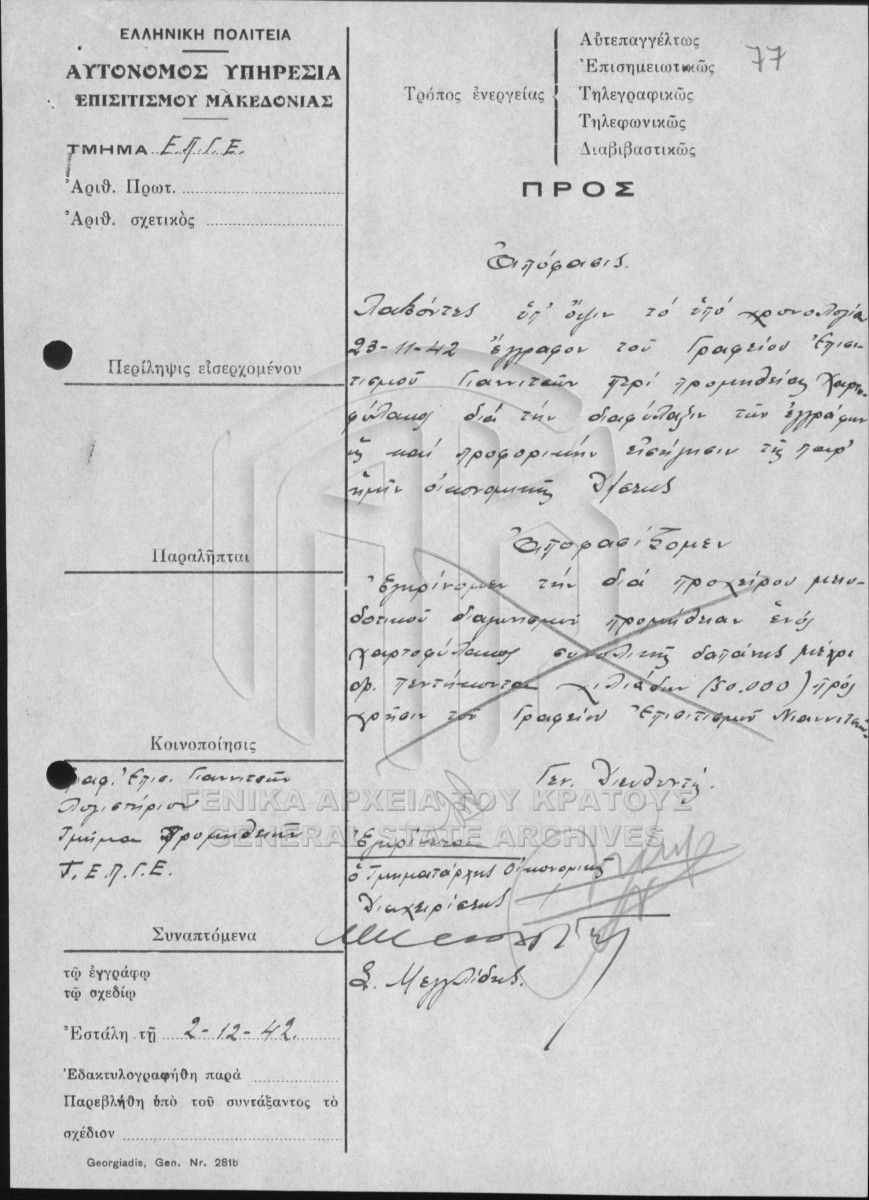 ΕΛΛΗΝΙΚΗ ΠΟΛΙΤΕΙΑ
ΑΥΤΟΝΟΜΟΣ ΥΠΗΡΕΣΙΑ
ΕΠΙΣΙΤΙΣΜΟΥ ΜΑΚΕΔΟΝΙΑΣ
ΤΜΗΜΑ Ε.Π.Γ.Ε.
Ἀριθ. Πρωτ.
Ἀριθ. σχετικὸς
Περίληψις εἰσερχομένου
Παραλῆπται
Κοινοποίησις
Γραφ. Ἐπισ. Γιαννιτσῶν
Λογιστήριον
Τμῆμα Προμηθειῶν
Τ. Ε.Π.Γ.Ε.
Συναπτόμενα
τῷ ἐγγράφῳ
τῷ σχεδίῳ
Ἐστάλη τῇ 2-12-42.
Ἐδακτυλογραφήθη παρὰ
Παρεβλήθη ὑπὸ τοῦ συντάξαντος τὸ
σχέδιον
Georgiadis, Gen. Nr. 281b
Τρόπος ἐνεργείας
Αὐτεπαγγέλτως
Ἐπισημειωτικῶς
Τηλεγραφικῶς
Τηλεφωνικῶς
Διαβιβαστικῶς
77
ΠΡΟΣ
Ἀπόφασις.
Λαβόντες ὑπ' ὄψιν τό ὑπό χρονολογία
23-11-42 ἔγγραφον τοῦ Γραφείου Ἐπισι-
τισμοῦ Γιαννιτσῶν περί προμηθείας χαρτο-
φύλακος διά τήν διαφύλαξιν τῶν ἐγγράφων
ὡς καί προφορικήν εἰσήγησιν τῆς παρ'
ἡμῖν οἰκονομικῆς Δ/σεως
Ἀποφασίζομεν
Ἐγκρίνομεν τήν διά προχείρου μειο-
δοτικοῦ διαγωνισμοῦ προμήθειαν ἑνός
χαρτοφύλακος συνολικῆς δαπάνης μέχρι
δρ. πεντήκοντα χιλιάδων (50.000) πρός
χρῆσιν τοῦ Γραφείου Ἐπισιτισμοῦ Γιαννιτσῶν
Γεν. Διευθυντής.
Ἐγκρίνεται
ὁ Τμηματάρχης Οἰκονομικῆς
Διαχειρίσεως
ΓΕΝΙΚΑ ΑΡΧΕΙΑ ΤΟΥ ΚΡΑΤΟΥΣ
GENERAL STATE ARCHIVES